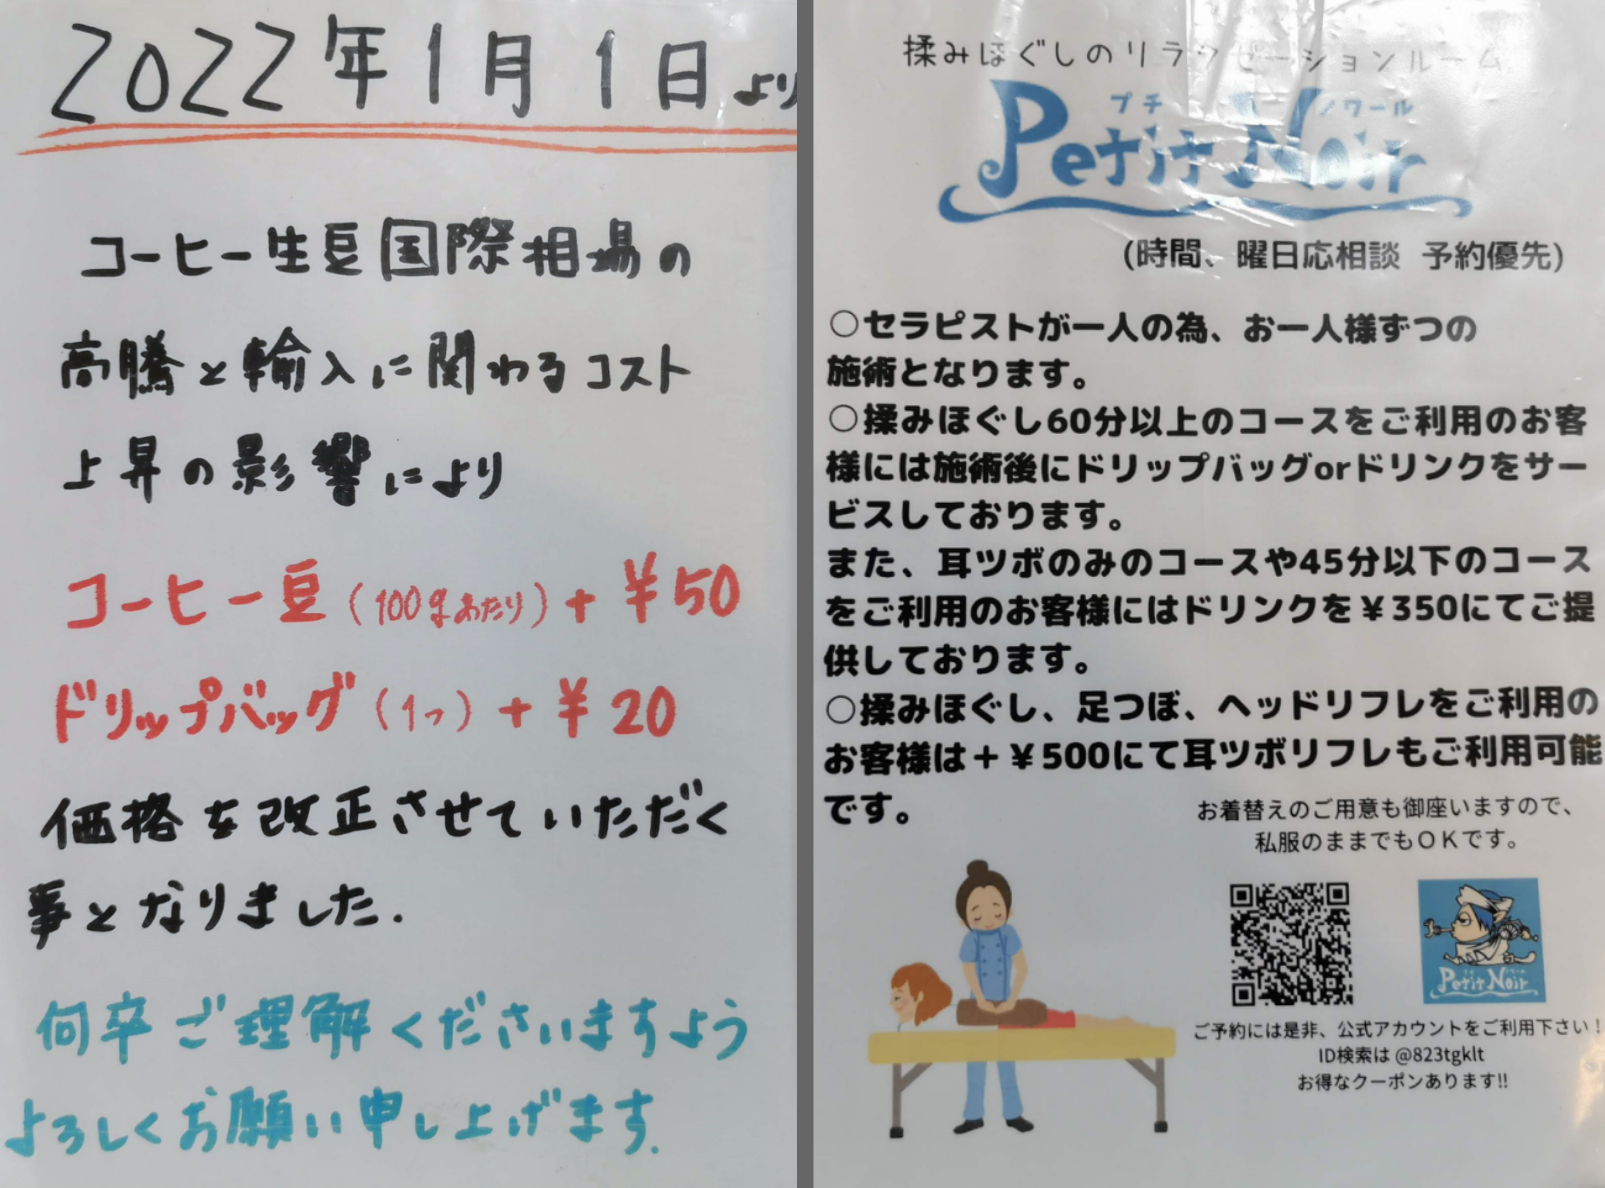 2022年1月1日より
コーヒー生豆国際相場の
高騰と輸入に関わるコスト
上昇の影響により
コーヒー豆(100gあたり)+¥50
ドリップバッグ(1つ)+¥20
価格を改正させていただく
事となりました.
何卒ご理解くださいますよう
よろしくお願い申し上げます.
揉みほぐしのリラクゼーションルーム
プチ ノワール
Petit Noir
(時間、曜日応相談 予約優先)
○セラピストが一人の為、お一人様ずつの
施術となります。
○揉みほぐし60分以上のコースをご利用のお客
様には施術後にドリップバッグorドリンクをサー
ビスしております。
また、耳ツボのみのコースや45分以下のコース
をご利用のお客様にはドリンクを¥350にてご提
供しております。
○揉みほぐし、足つぼ、ヘッドリフレをご利用の
お客様は+¥500にて耳ツボリフレもご利用可能
です。
お着替えのご用意も御座いますので、
私服のままでもOKです。
Petit Noir
ご予約には是非、公式アカウントをご利用下さい!
ID検索は @823tgklt
お得なクーポンあります!!